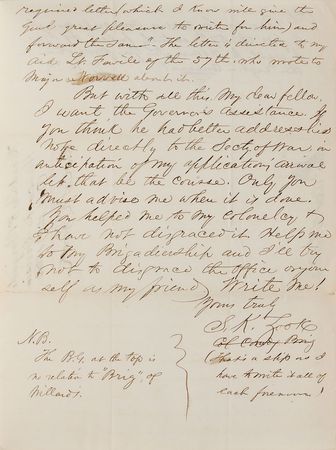 required letter (which I know will give the
Genl great pleasure to write for him) and
forward the same? The letter is directed to my
aid Lt Favill of the 57th who wrote to
Major about it.
But with all this, My dear fellow,
I want the Governor's assistance. If
you think he had better address his
note directly to the Secty of War in
anticipation of my application's arrival
let that be the course. Only you
must advise me when it is done.
You helped me to my colonelcy &
I have not disgraced it. Help me
to my Brigadiership and I'll try
not to disgrace the office or your
self as my friend. Write me!
Yours truly
S. K. Zook
Col Comdg Brig
(This is a slip as I
have to write it all of
each forenoon!
N.B.
The B.G. at the top is
no relation to "Brig", of
Willard's.